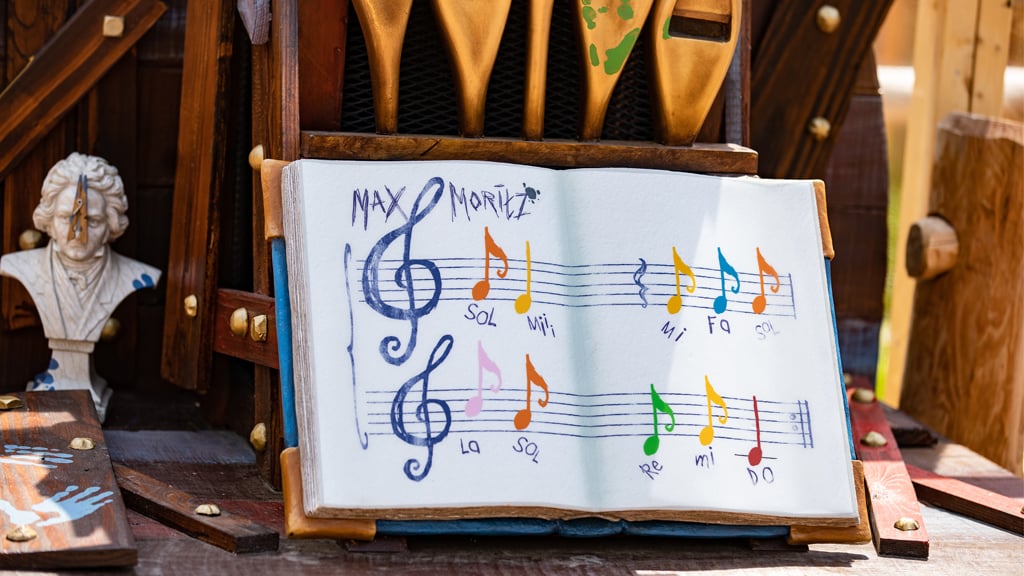 MAX MORITZ
SOL Mi Mi FA SOL
LA SOL Re mi DO